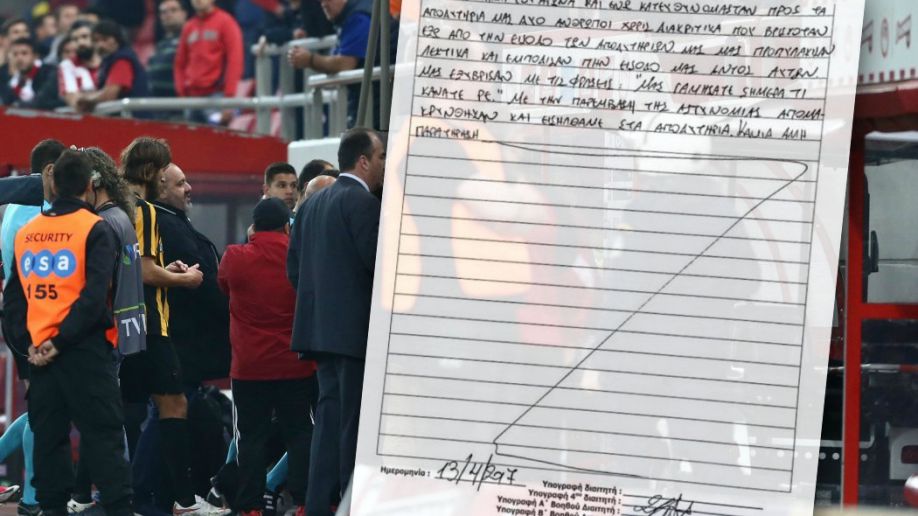 ΑΠΟΔΥΤΗΡΙΑ ΜΑΣ ΔΥΟ ΑΝΘΡΩΠΟΙ ΧΩΡΙΣ ΔΙΑΚΡΙΤΙΚΑ ΠΟΥ ΒΡΙΣΚΟΤΑΝ
ΕΞΩ ΑΠΟ ΤΗΝ ΕΙΣΟΔΟ ΤΩΝ ΑΠΟΔΥΤΗΡΙΩΝ ΜΑΣ ΜΑΣ ΠΡΟΠΗΛΑΚΙΣΑΝ
ΛΕΚΤΙΚΑ ΚΑΙ ΕΜΠΟΔΙΣΑΝ ΤΗΝ ΕΙΣΟΔΟ ΜΑΣ ΕΝΤΟΣ ΑΥΤΩΝ
ΜΑΣ ΕΞΥΒΡΙΣΑΝ ΜΕ ΤΙΣ ΦΡΑΣΕΙΣ: "ΜΑΣ ΓΑΜΗΣΑΤΕ ΣΗΜΕΡΑ ΤΙ
ΚΑΝΑΤΕ ΡΕ." ΜΕ ΤΗΝ ΠΑΡΕΜΒΑΣΗ ΤΗΣ ΑΣΤΥΝΟΜΙΑΣ ΑΠΟΜΑ-
ΚΡΥΝΘΗΣΑΝ ΚΑΙ ΕΙΣΗΛΘΑΜΕ ΣΤΑ ΑΠΟΔΥΤΗΡΙΑ. ΚΑΜΙΑ ΑΛΛΗ
ΠΑΡΑΤΗΡΗΣΗ
SECURITY
esa
155
TV
Ημερομηνία : 13/4/297
Υπογραφή διαιτητή :
Υπογραφή 4ου διαιτητή :
Υπογραφή Α΄ Βοηθού Διαιτητή :
Υπογραφή Β΄ Βοηθού